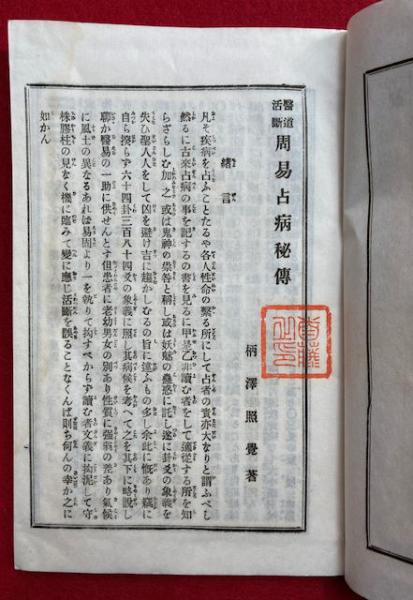 醫道
活斷
周易占病秘傳
柄澤照覺著
緒言
凡そ疾病を占ふことたるや各人性命の繋る所にして占者の責亦大なりと謂ふべし
然るに古來占病の事を記するの書を見るに甲是乙非讀む者をして適從する所を知
らざらしむ加之或は鬼神の祟咎と稱し或は妖魅の蠱惑に託し遂に卦爻の象義を
失ひ聖人をして凶を避け吉に趨かしむるの旨に違ふもの多し余此に慨あり竊に
自ら揆らず六十四卦三百八十四爻の象義に照し其病候を考へて之を其下に略説し
聊か醫易の一助に供せんとす但患者に老幼男女の別あり性質に強弱の差あり氣候
に風土の異なるあれば易固より一を執りて拘すべからず讀む者文義に拘泥して守
株膠柱の見なく機に臨みて變に應じ活斷を誤ることなくんば則ち何んの幸か之に
如かん